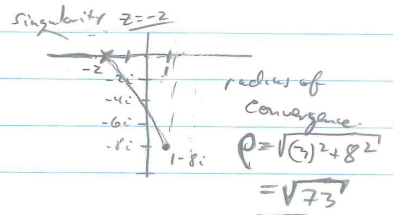 singularity z=-2
-2
1
-2i
-4i
-6i
-8i
1-8i
radius of
convergence.
ρ=√(3)²+8²
=√73